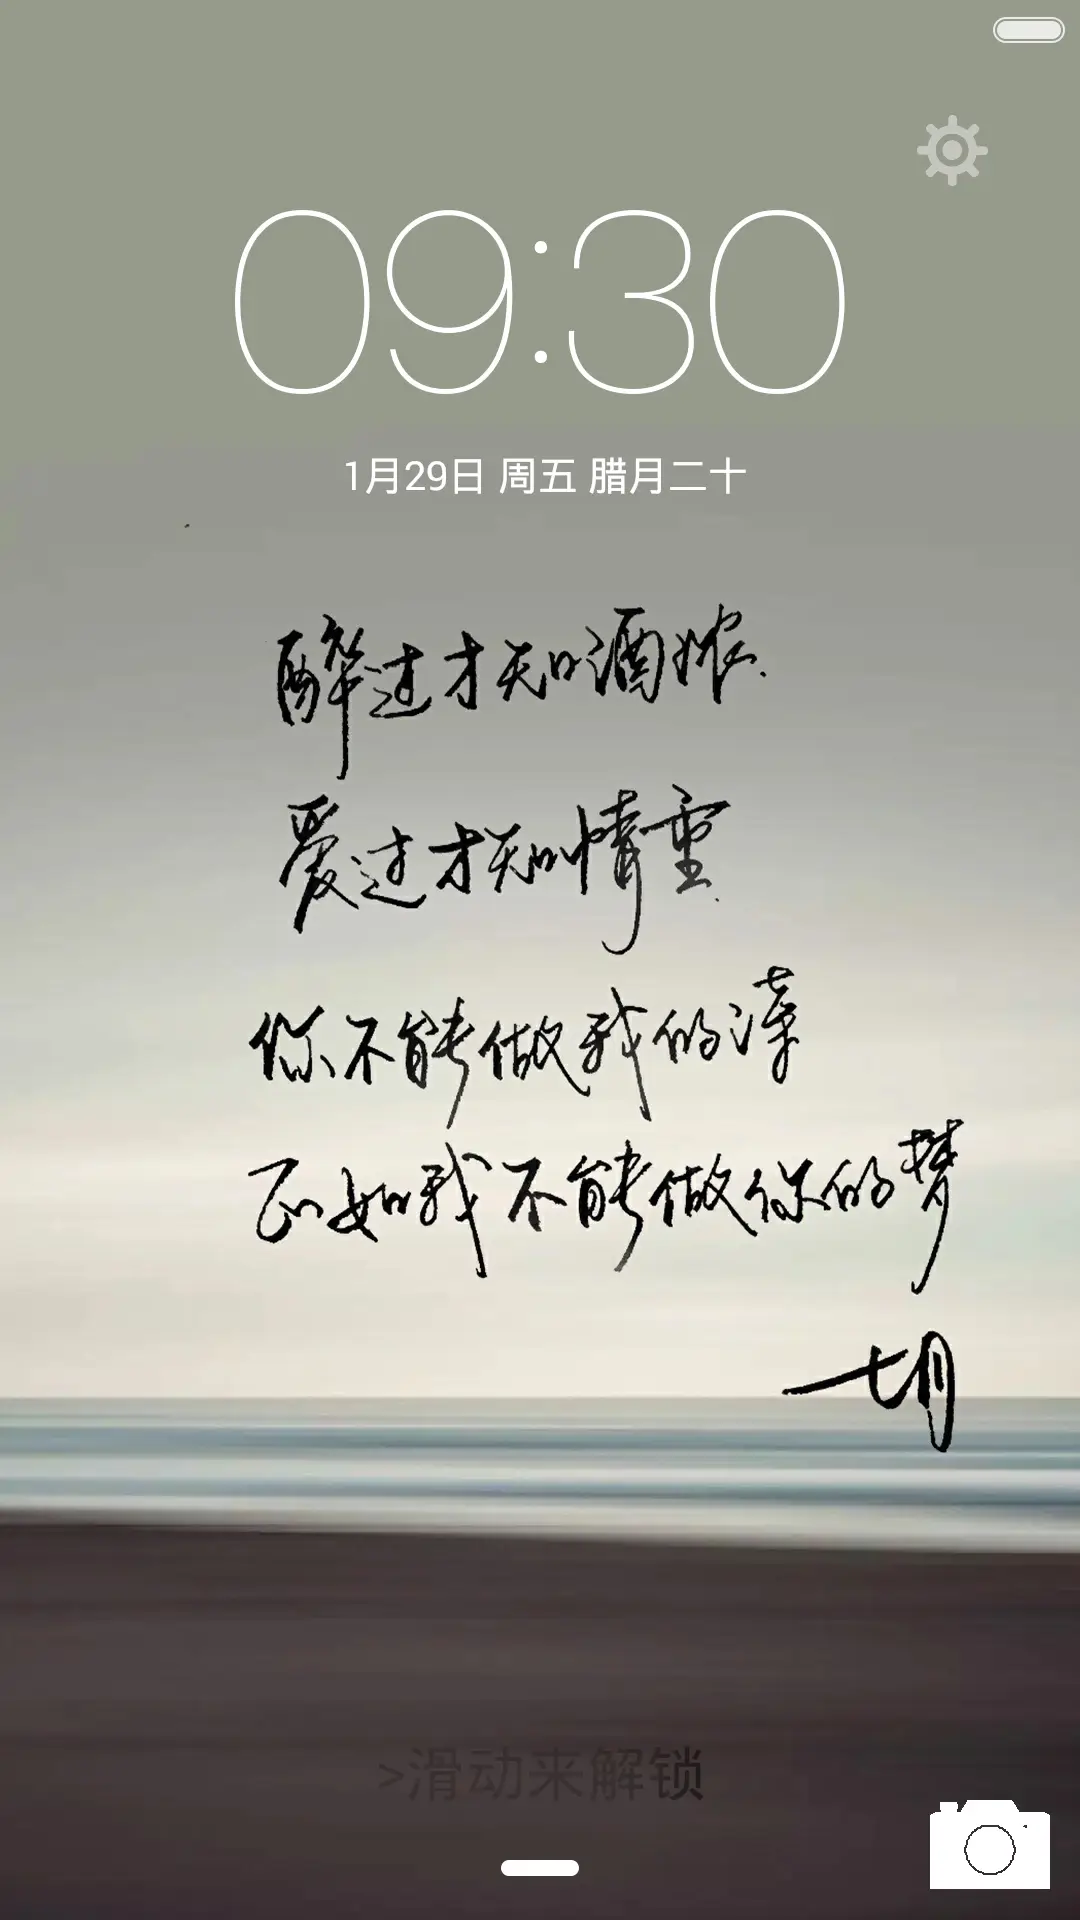 09:30
1月29日 周五 腊月二十
醉过才知酒浓
爱过才知情重
你不能做我的诗
正如我不能做你的梦
七月
>滑动来解锁